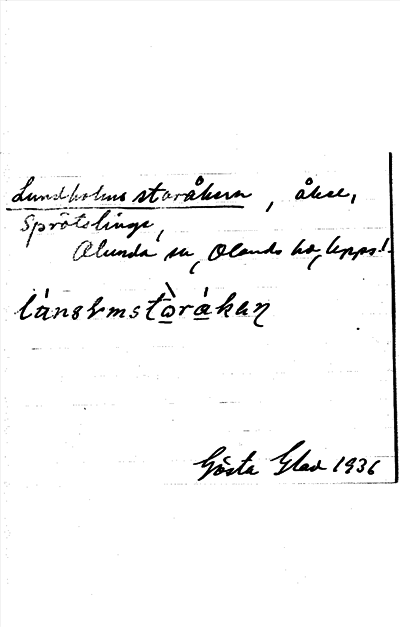 Lundholms storåkern, åker,
Sprötslinge,
Alunda sn, Olands hd, Uppsl.
lúnshmstɷ̀rákaņ
Gösta Glad 1936